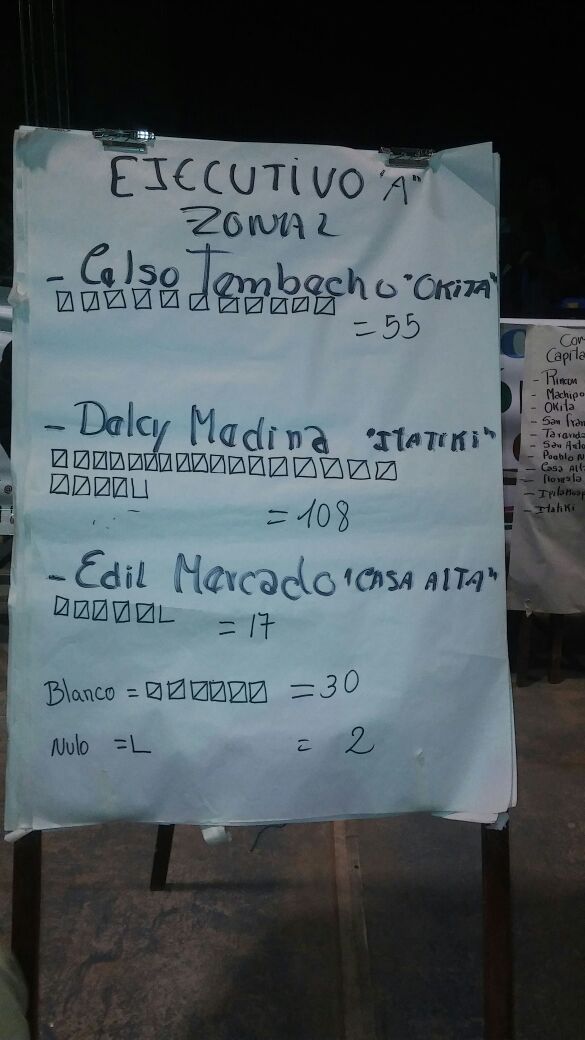 EJECUTIVO "A"
ZONAL
- Celso Tembacho "OKITA"
= 55
- Dalcy Medina "ITATIKI"
= 108
- Edil Mercado "CASA ALTA"
= 17
Blanco = = 30
Nulo = = 2
Com
Capita
- Rincon
- Machipo
- OKita
- San Fran
- San Anto
- Pueblo N
- Casa Alt
- Itatiki